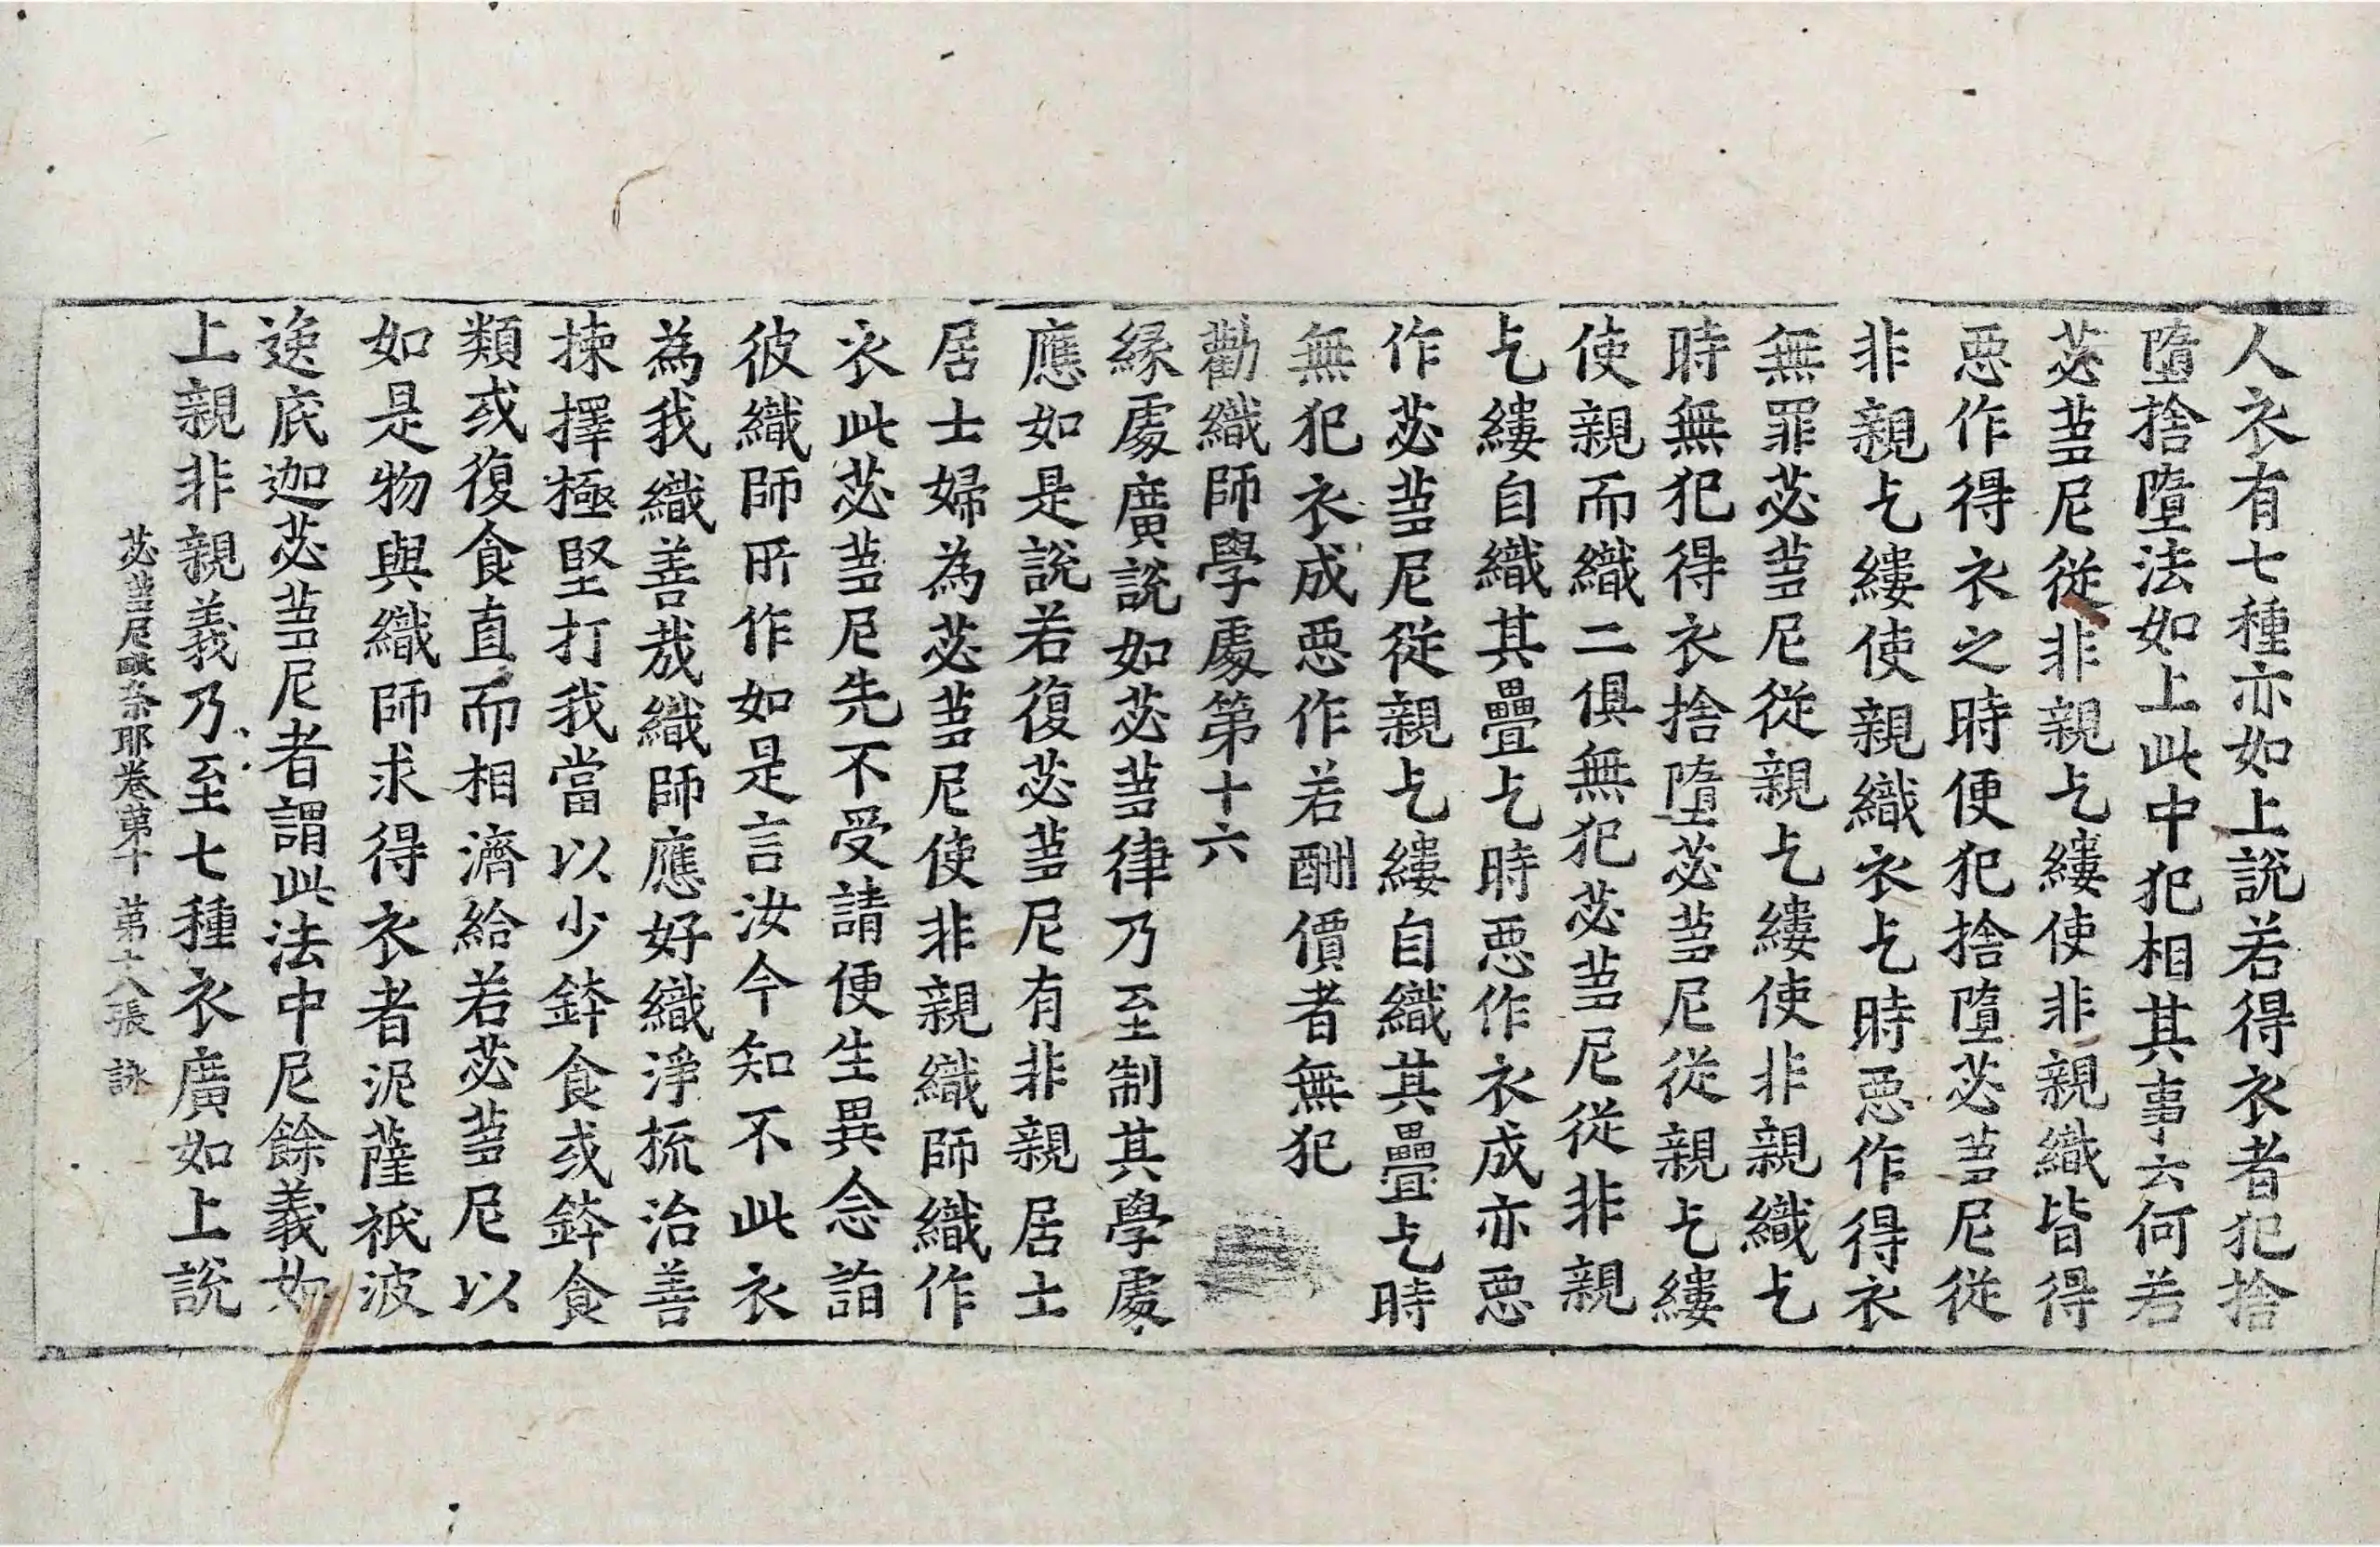 人衣有七種亦如上說若得衣者犯捨
墮捨墮法如上此中犯相其事云何若
苾芻尼從非親乞縷使非親織皆得
惡作得衣之時便犯捨墮苾芻尼從
非親乞縷使親織衣乞時惡作得衣
無罪苾芻尼從親乞縷使非親織乞
時無犯得衣捨墮苾芻尼從親乞縷
使親而織二俱無犯苾芻尼從非親
乞縷自織其疊乞時惡作衣成亦惡
作苾芻尼從親乞縷自織其疊乞時
無犯衣成惡作若酬價者無犯
勸織師學處第十六
緣處廣說如苾芻律乃至制其學處
應如是說若復苾芻尼有非親居士
居士婦為苾芻尼使非親織師織作
衣此苾芻尼先不受請便生異念詣
彼織師所作如是言汝今知不此衣
為我織善哉織師應好織淨梳治善
揀擇極堅打我當以少鉢食或鉢食
類或復食直而相濟給若苾芻尼以
如是物與織師求得衣者泥薩祇波
逸底迦苾芻尼者謂此法中尼餘義如
上親非親義乃至七種衣廣如上說
苾芻尼毗奈耶卷第十 第十八張 詠